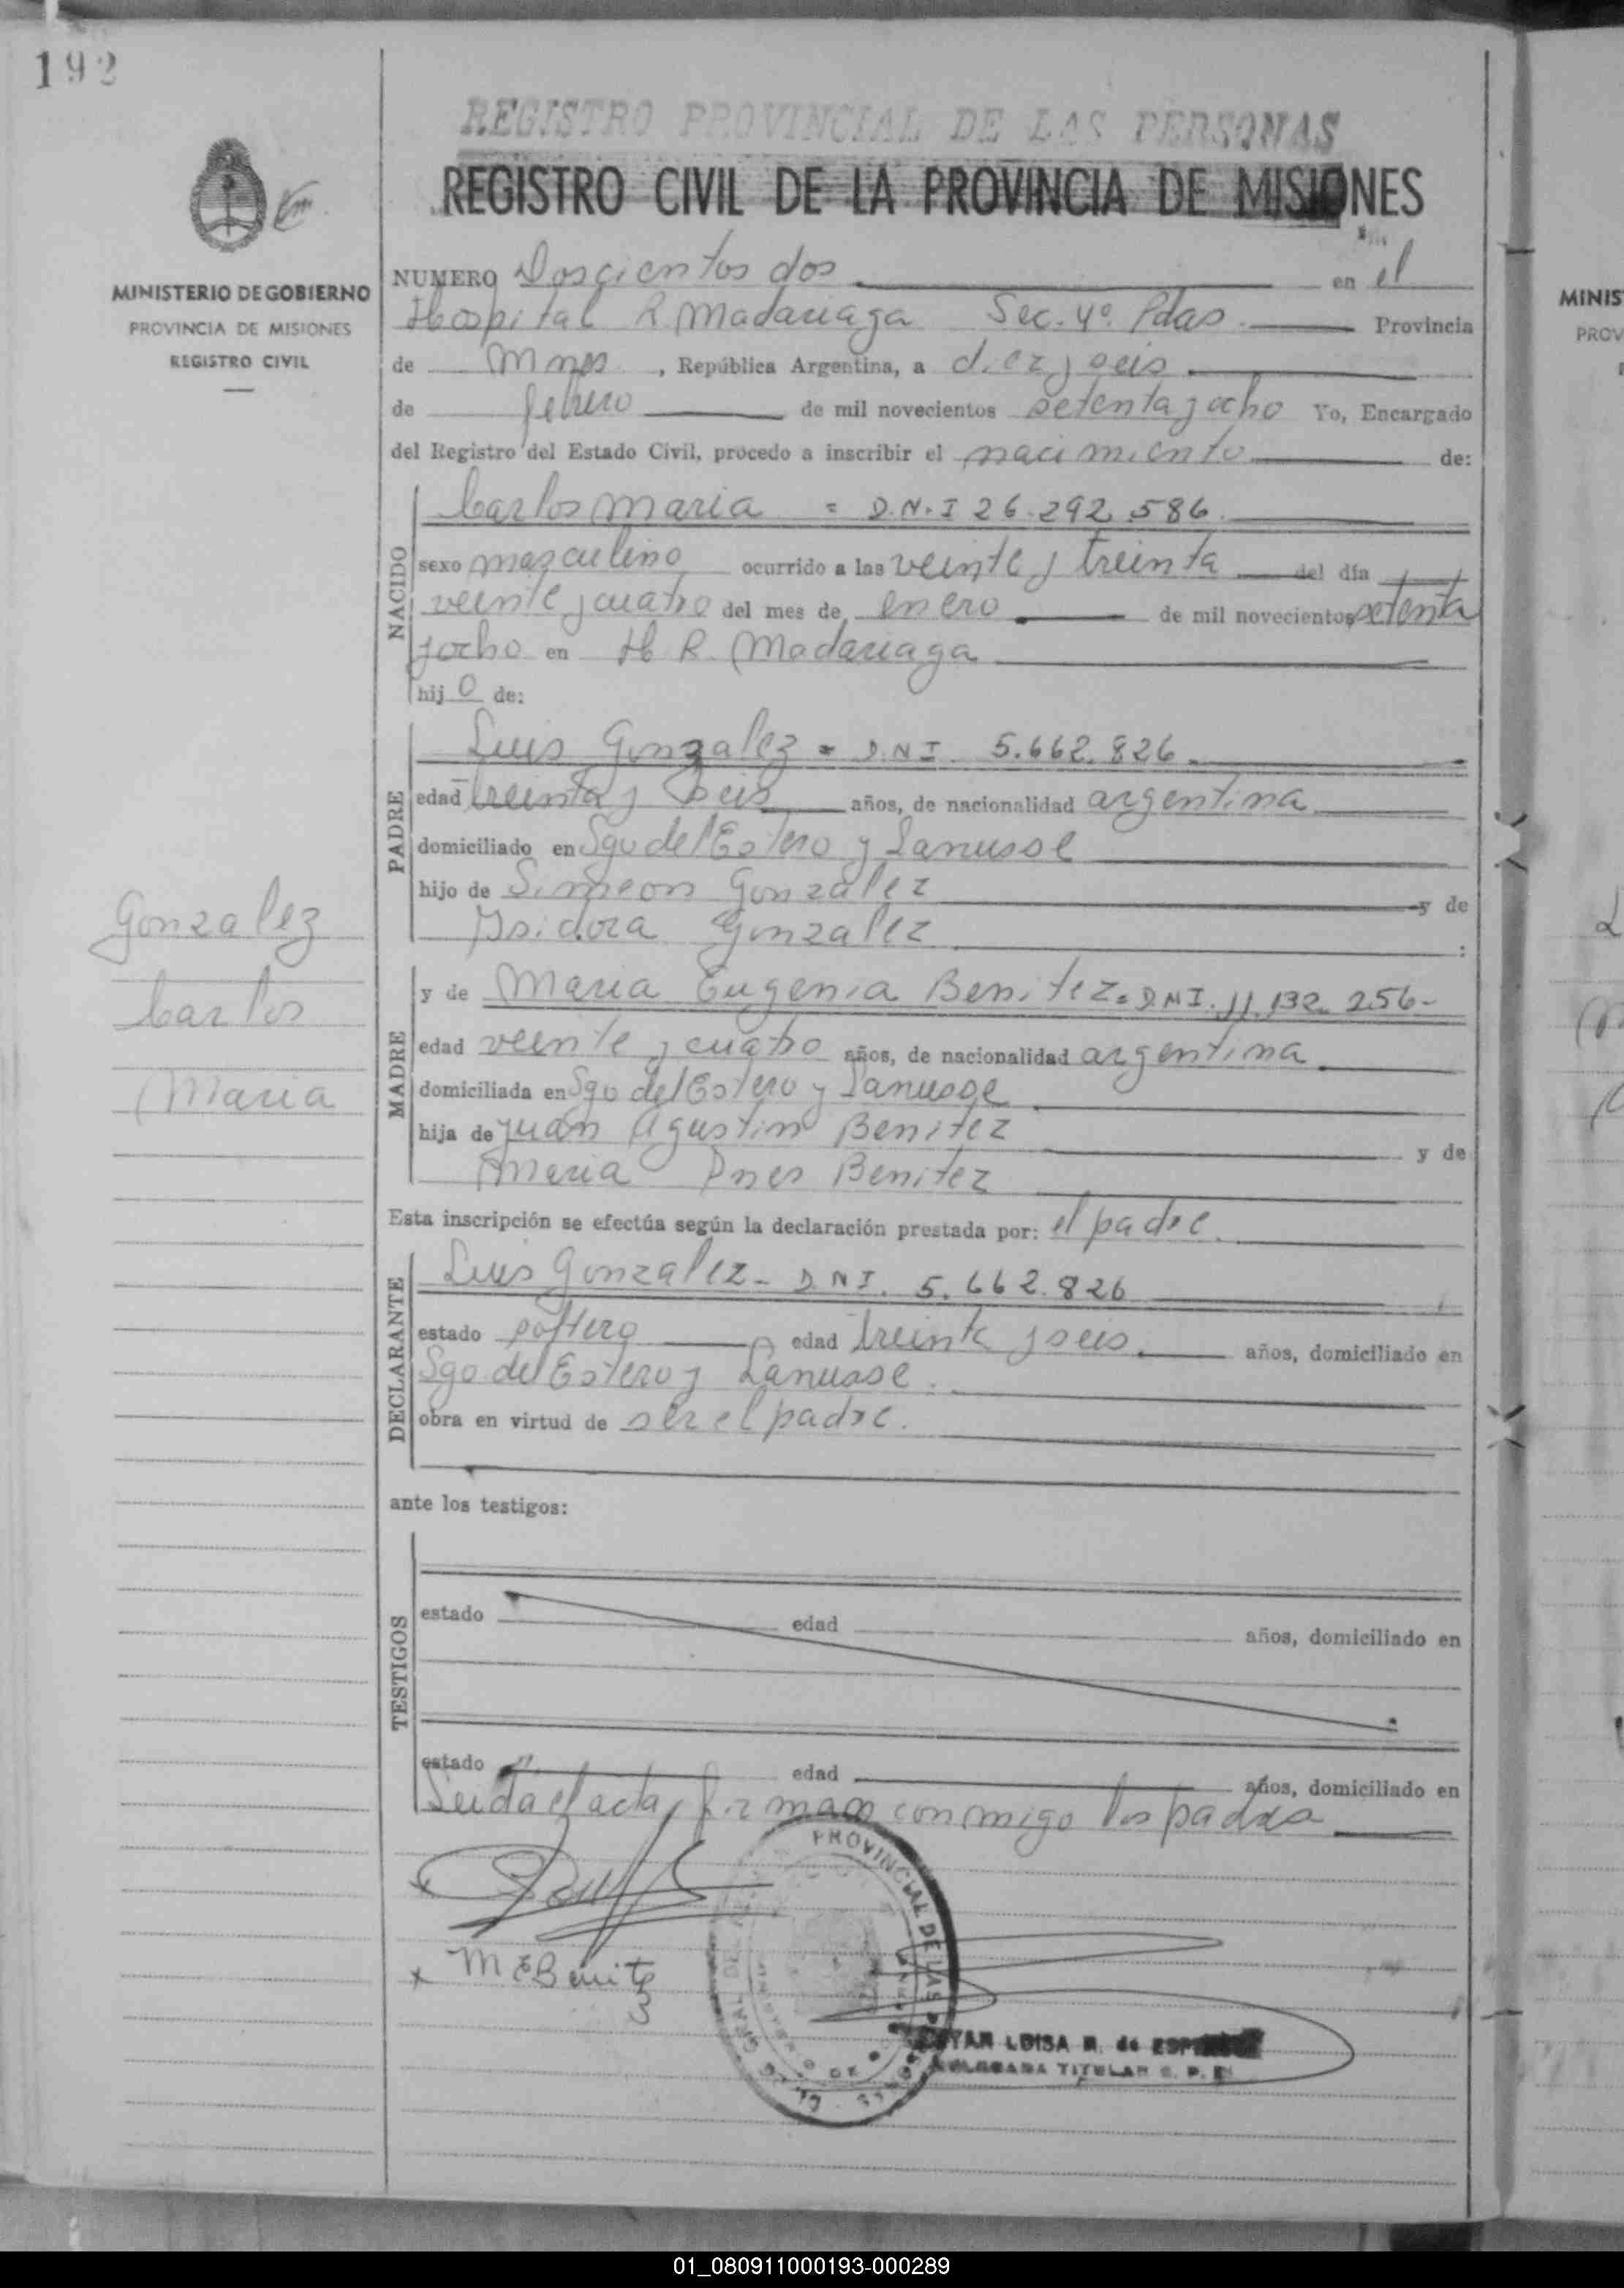 192
REGISTRO PROVINCIAL DE LAS PERSONAS
REGISTRO CIVIL DE LA PROVINCIA DE MISIONES
MINISTERIO DE GOBIERNO
PROVINCIA DE MISIONES
REGISTRO CIVIL
NUMERO Doscientos dos en el
Hospital R. Madariaga Sec. 4º. Pdas. Provincia
de Mnes , República Argentina, a diez y seis
de febrero de mil novecientos setenta y ocho Yo, Encargado
del Registro del Estado Civil, procedo a inscribir el nacimiento de:
NACIDO
Carlos Maria = D.N.I 26.292.586.
sexo masculino ocurrido a las veinte y treinta del día
veinte y cuatro del mes de enero de mil novecientos setenta
y ocho en H R. Madariaga
hij o de:
PADRE
Luis Gonzalez = D.N.I. 5.662.826
edad treinta y seis años, de nacionalidad argentina
domiciliado en Sgo del Estero y Lanusse
hijo de Simeon Gonzalez y de
Ysidora Gonzalez :
Gonzalez
Carlos
Maria
MADRE
y de Maria Eugenia Benitez = D.N.I. 11.132.256-
edad veinte y cuatro años, de nacionalidad argentina
domiciliada en Sgo del Estero y Lanusse
hija de Juan Agustin Benitez y de
Maria Ines Benitez
Esta inscripción se efectúa según la declaración prestada por: el padre.
DECLARANTE
Luis Gonzalez - D.N.I. 5.662.826
estado soltero edad treinta y seis años, domiciliado en
Sgo del Estero y Lanusse.
obra en virtud de ser el padre.
ante los testigos:
TESTIGOS
estado edad años, domiciliado en
estado edad años, domiciliado en
Leida el acta, firman conmigo los padres
PROVINCIAL DE LAS
M E Benitez
LUISA R. de
TITULAR
01_080911000193-000289